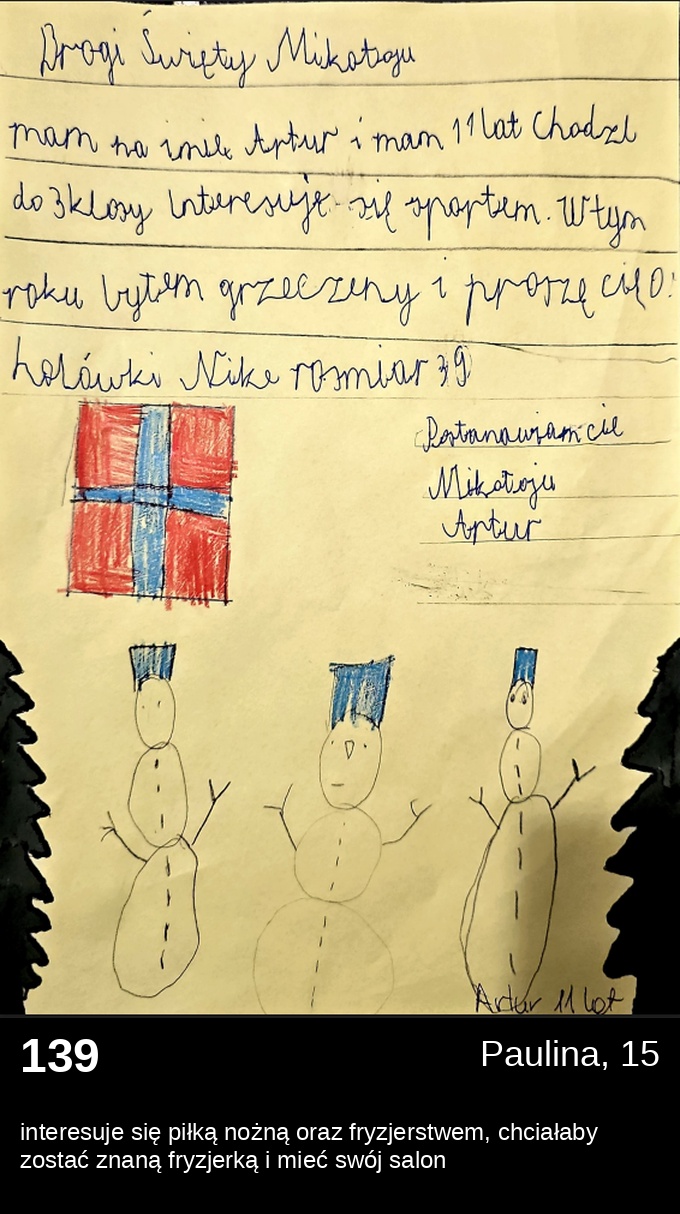 Drogi Święty Mikołaju
mam na imie Artur i mam 11 lat Chodzi
do 3 klasy interesuje się sportem. W tym
roku byłem grzeczeny i proszę cię O:
holówki Nike rosmiar 39
Postanawiam cie
Mikołaju
Artur
Artur 11 lat
139
Paulina, 15
interesuje się piłką nożną oraz fryzjerstwem, chciałaby
zostać znaną fryzjerką i mieć swój salon